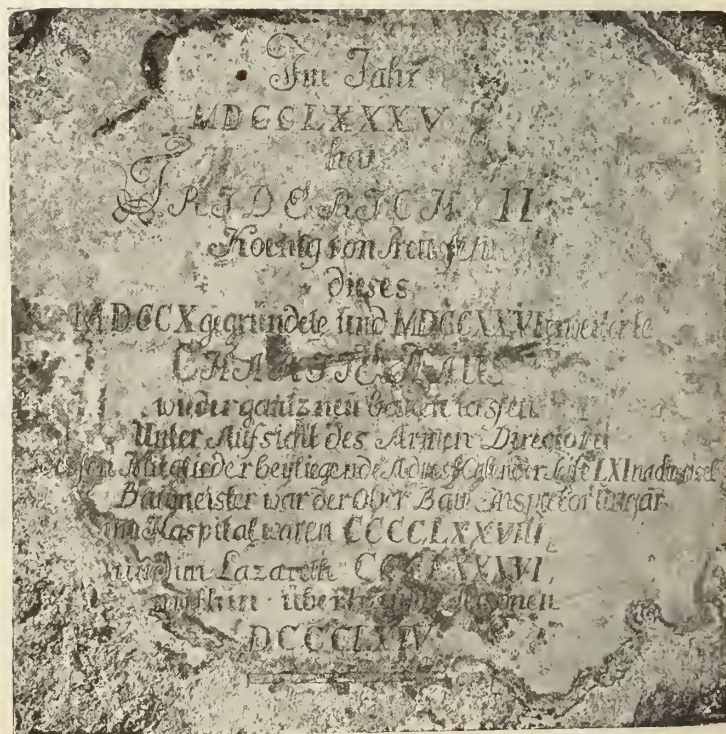 Im Jahr
MDCCLXXXV
hat
FRIDERICH II
Koenig von Preussen
dieses
MDCCX gegründete und MDCCXXVI erweiterte
CHARITÉ HAUS
wieder gantz neu bauen lassen
Unter Aufsicht des Armen Directorii
dessen Mitglieder beyliegende Adress Calender Seite LXI nachweiset
Baumeister war der Ober Bau Inspector Ungar
im Haspital waren CCCCLXXVIII,
und im Lazareth CCCCLXXXVI,
mithin überhaupt
DCCCCLXIV